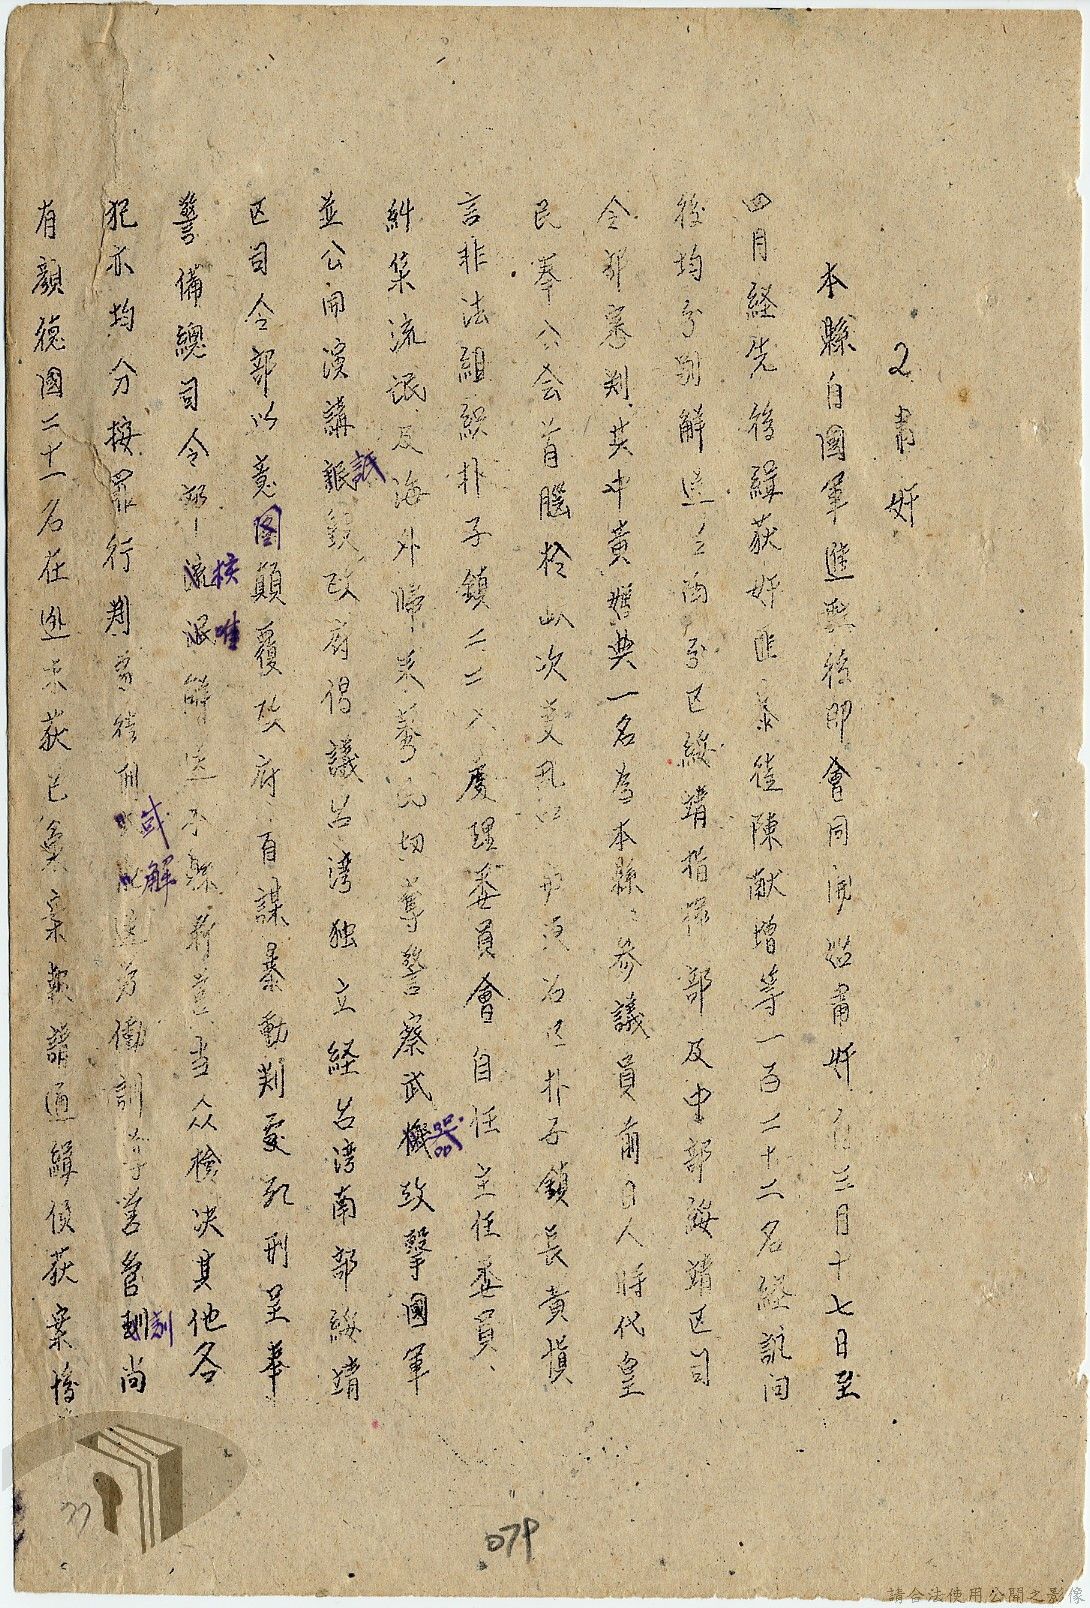 2 肅奸
本縣自國軍進駐後即會同開始肅奸自三月十七日至
四月経先後緝获奸匪暴徒陳献增等一百二十二名経訊问
後均分別解送台南分区綏靖指揮部及中部綏靖区司
令部審判其中黃媽典一名為本縣參議員前日人時代皇
民奉公会首腦於此次变乱
朴子鎮長黃
言非法組織朴子鎮二二八處理委員會自任主任委員、
糾集流氓、及海外歸來
劫奪警察武器攻擊國軍
並公開演講詆毀政府倡議台湾独立経台湾南部綏靖
区司令部以意图顛覆政府、首謀暴動判處死刑呈奉
警備總司令部核准解送本縣
当众槍决其他各
犯亦均分按罪行判
徒刑或解送劳働訓導
尚
有顏德國二十一名在逃未获已彙案報請通緝候获案
079
請合法使用公開之影像